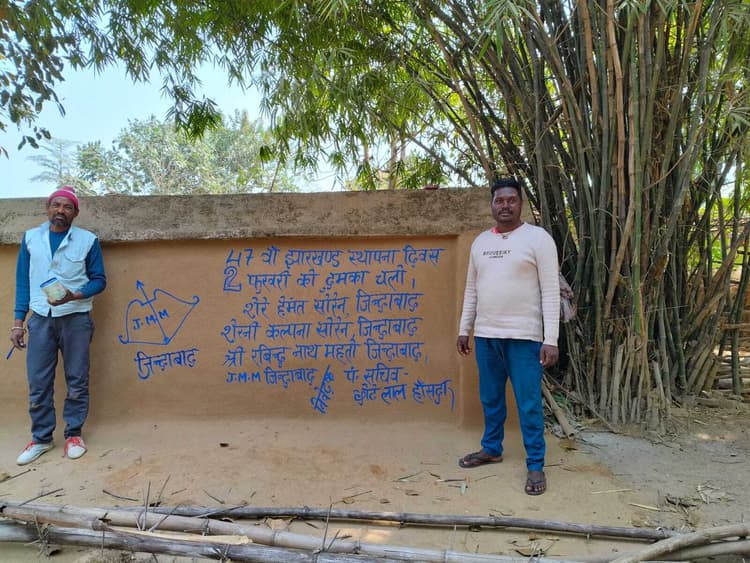 47 वाँ झारखण्ड स्थापना दिवस
2 फरवरी को दुमका चलो।
शेरे हेमंत सोरेन, जिन्दाबाद
शेरनी कल्पना सोरेन, जिन्दाबाद
श्री रबिन्द्र नाथ महतो जिन्दाबाद,
J.M.M जिन्दाबाद, पं. सचिव-
छोटे लाल हाँसदा,
J.M.M
जिन्दाबाद